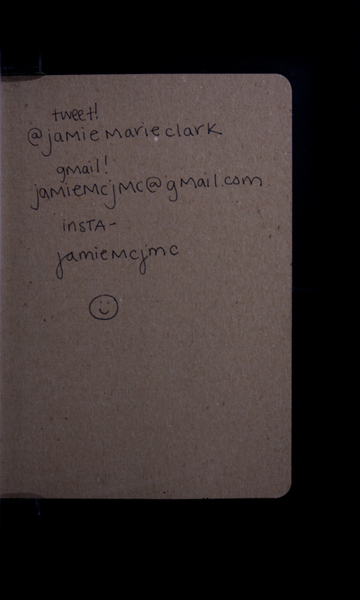 tweet!
@jamiemarieclark
gmail!
jamiemcjmc@gmail.com
insta-
jamiemcjmc